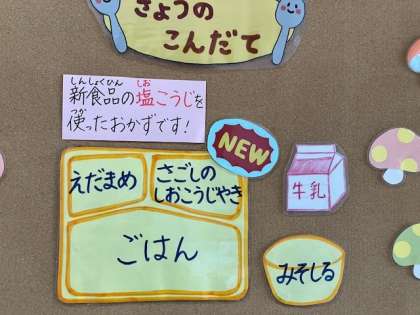 きょうの
こんだて
しんしょくひん しお
新食品の塩こうじを
つか
使ったおかずです!
NEW
えだまめ
さごしの
しおこうじやき
牛乳
ごはん
みそしる